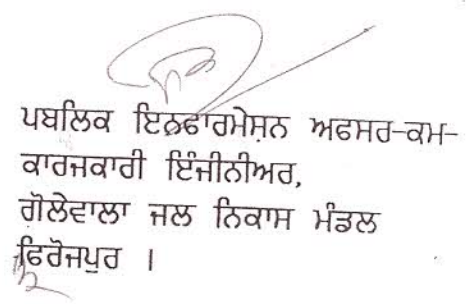 ਪਬਲਿਕ ਇਨਫਾਰਮੇਸ਼ਨ ਅਫਸਰ-ਕਮ-
ਕਾਰਜਕਾਰੀ ਇੰਜੀਨੀਅਰ,
ਗੋਲੇਵਾਲਾ ਜਲ ਨਿਕਾਸ ਮੰਡਲ
ਫਿਰੋਜਪੁਰ ।